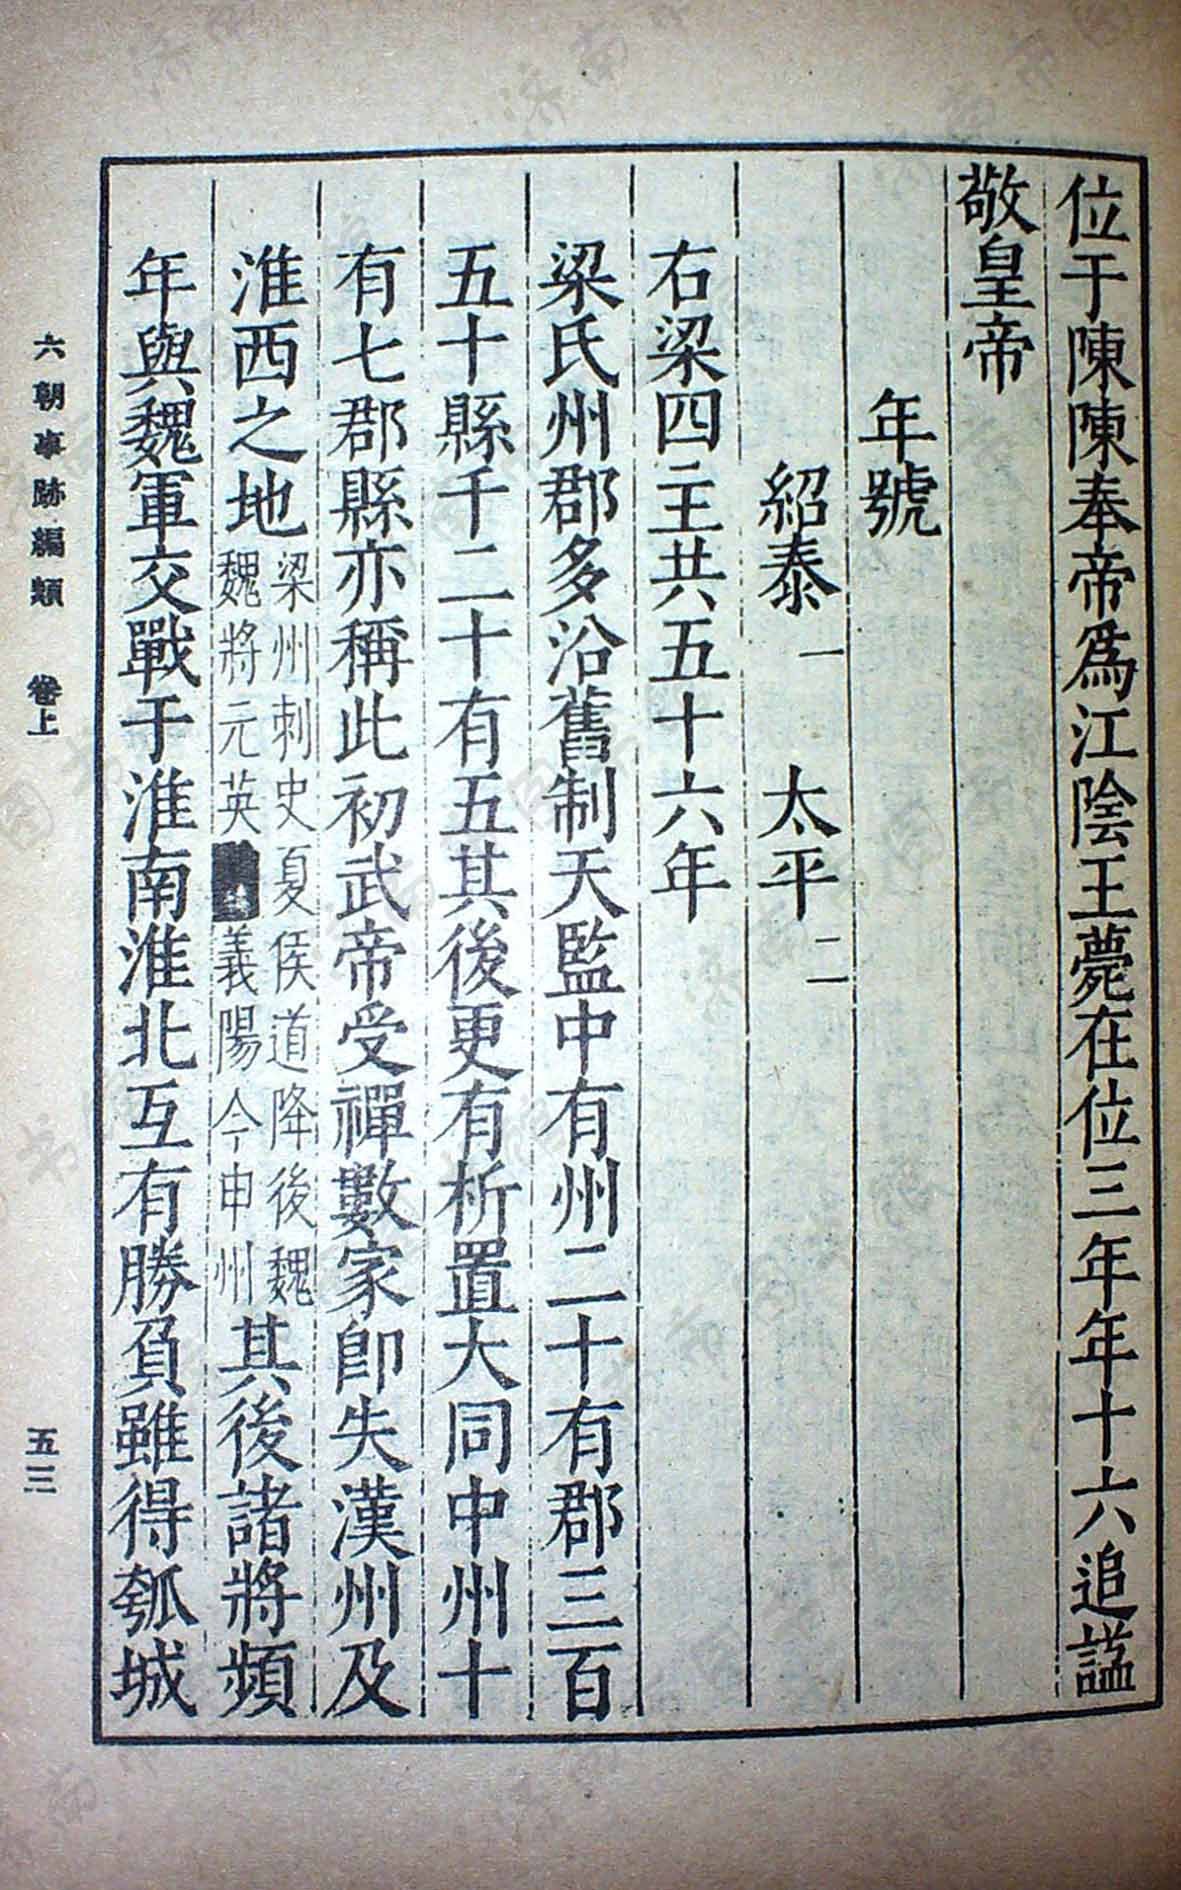 位于陳陳奉帝爲江陰王薨在位三年年十六追諡
敬皇帝
年號
紹泰一 太平二
右梁四主共五十六年
梁氏州郡多沿舊制天監中有州二十有郡三百
五十縣千二十有五其後更有析置大同中州十
有七郡縣亦稱此初武帝受禪數家卽失漢州及
淮西之地梁州刺史夏侯道降後魏魏將元英義陽今申州其後諸將頻
年與魏軍交戰于淮南淮北互有勝負雖得瓠城
六朝事跡編類 卷上
五三